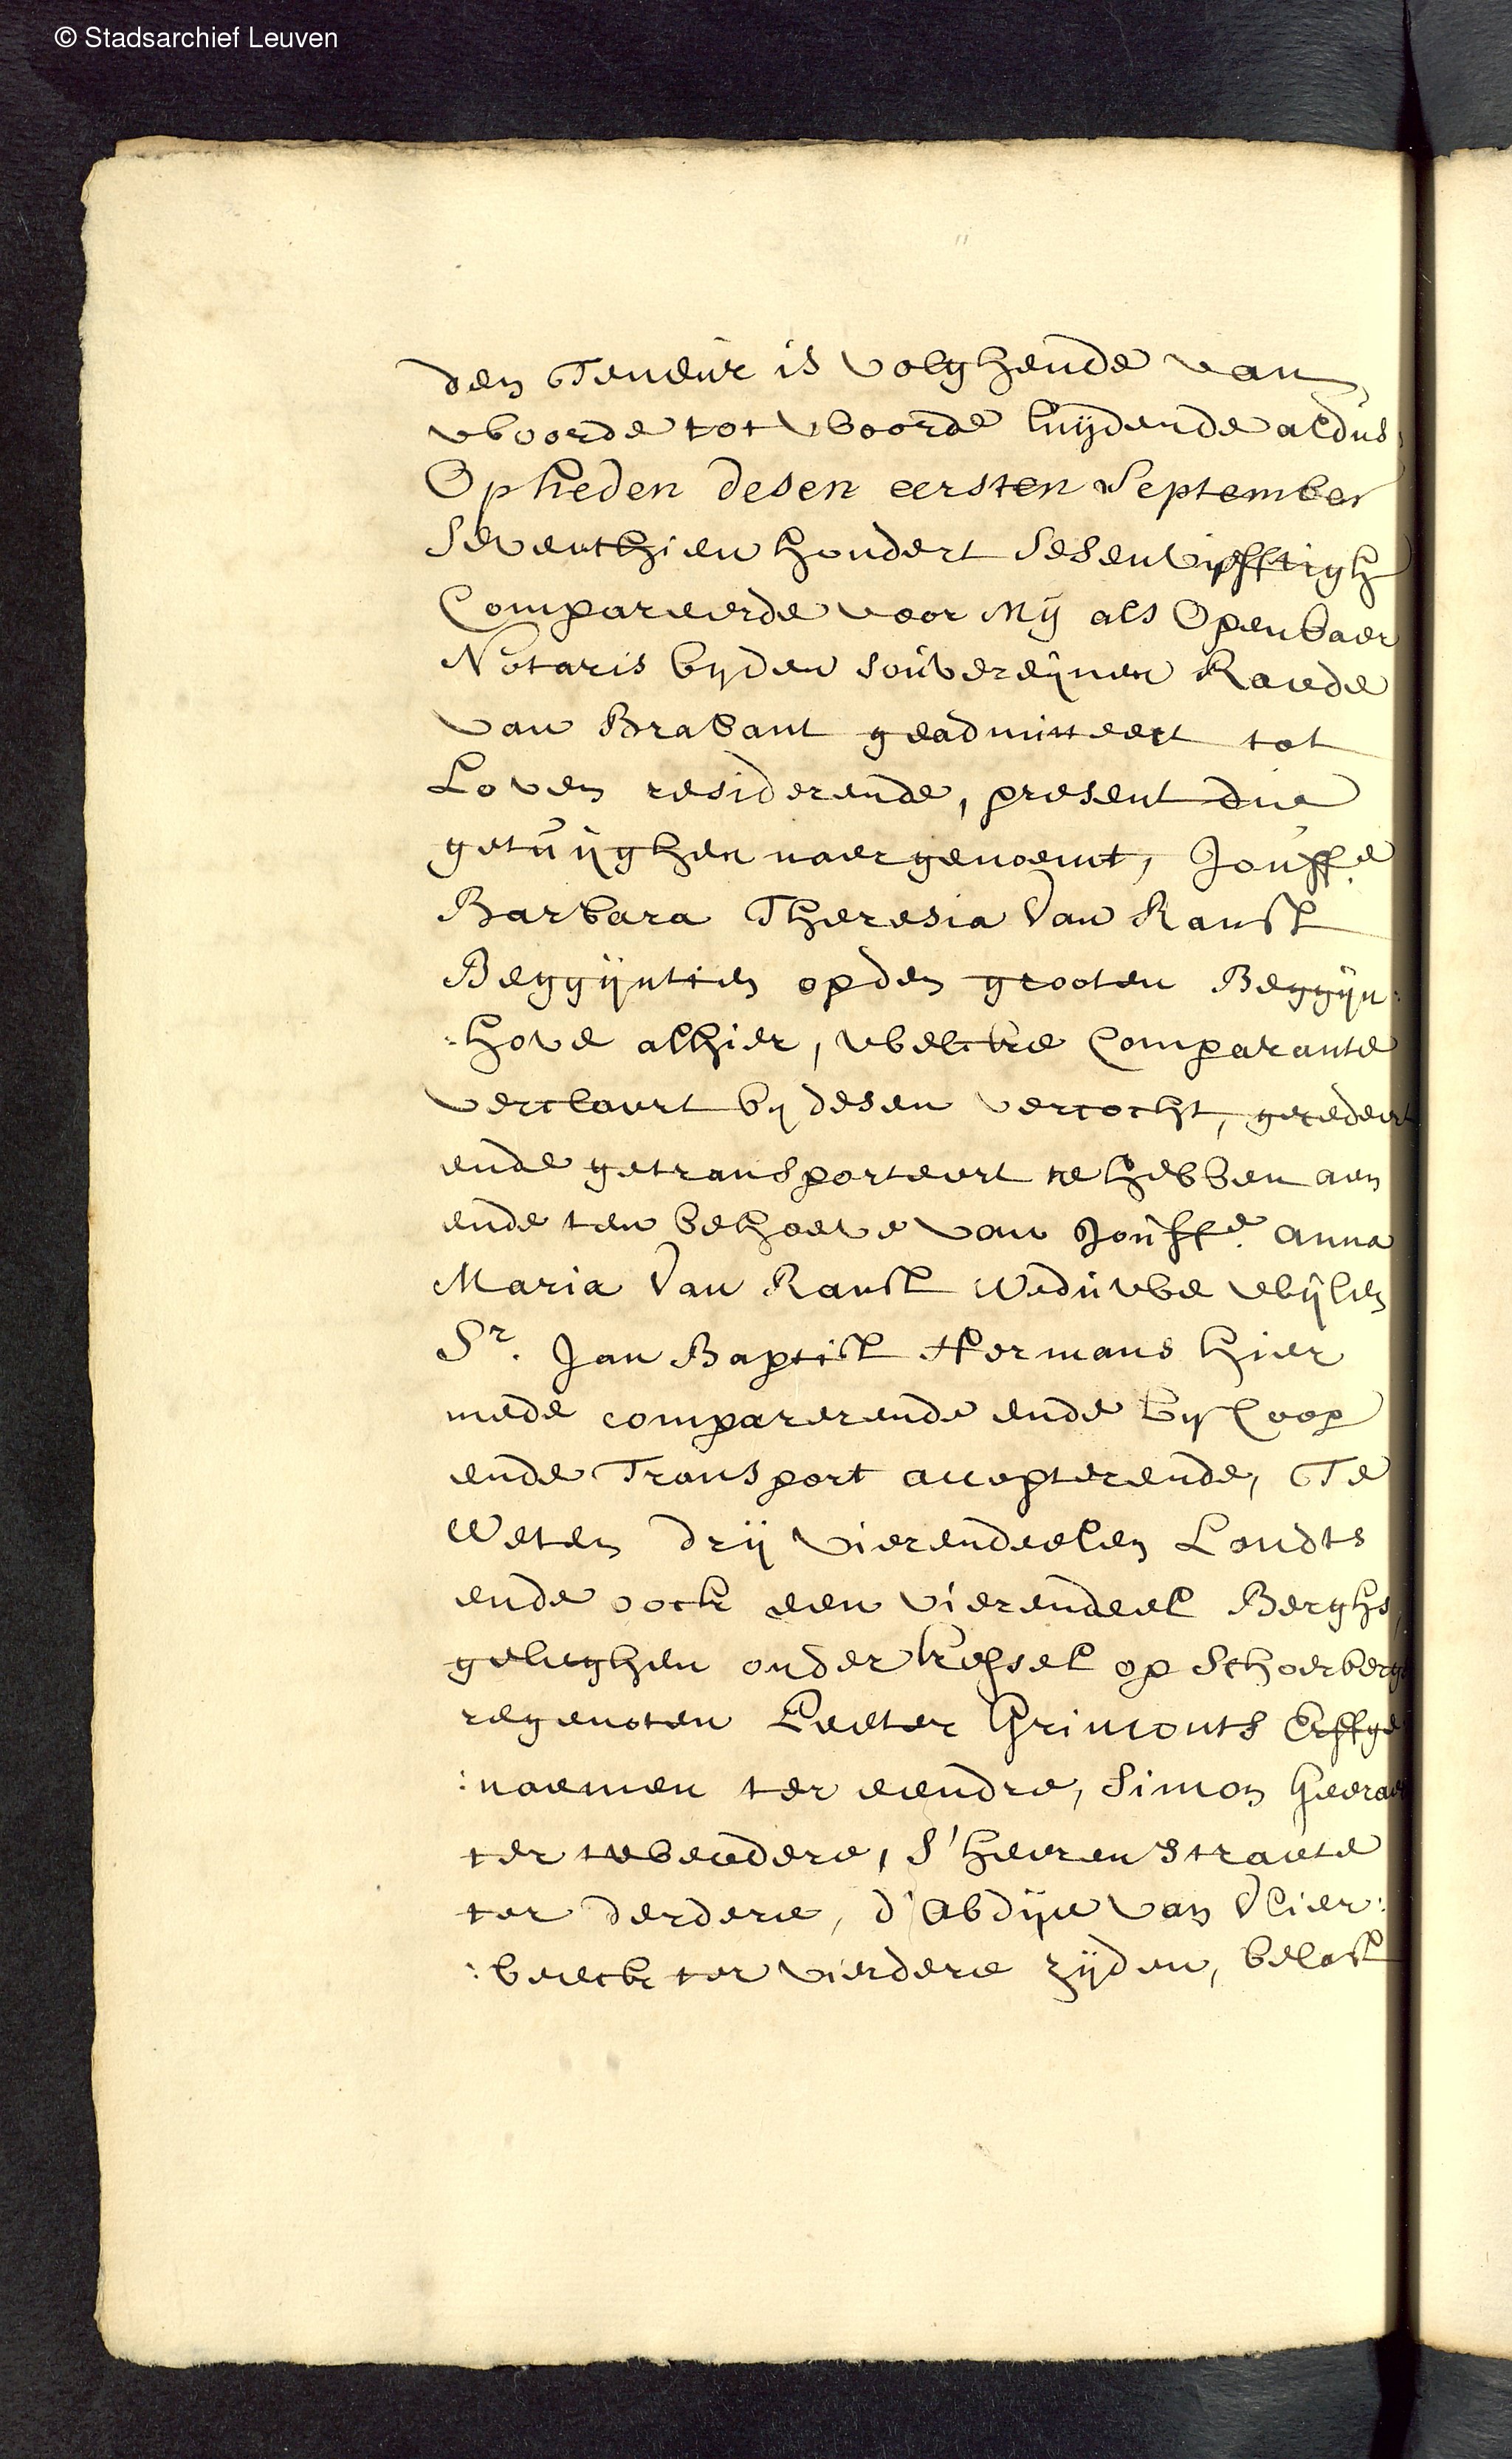 © Stadsarchief Leuven
den Teneur is volghende van
woorde tot woorde luijdende aldus
Op heden desen eersten September
seventhien hondert sesenvijfftigh
Compareerde voor Mij als Openbaer
Notaris bijden souvereijnen Raede
van Brabant geadmitteert tot
Loven residerende, present die
getuijghen naergenoemt, Jouffe
Barbara Theresia Van Ranst
Beggijntien opden grooten Beggijn:
:hove alhier, welcke Comparante
verclaert bij desen vercocht, gecedeert
ende getransporteert te hebben aen
ende ten behoeve van Jouffe. anna
Maria Van Ranst Weduwe wijlen
Sr. Jan Baptist Hermans hier
mede comparerende ende bij Coop
ende Transport accepterende, Te
Weten drij vierendeelen Landts
ende oock een vierendeel Berghs,
geleghen onder Kessel op Schoerbergh
regenoten Peeter Grimonts Erffge
:naemen ter eendre, Simon Geeraer
ter tweedere, S'heeren straete
ter derdere, d'Abdije van Vlier:
:beeck ter vierdere zijden, belast